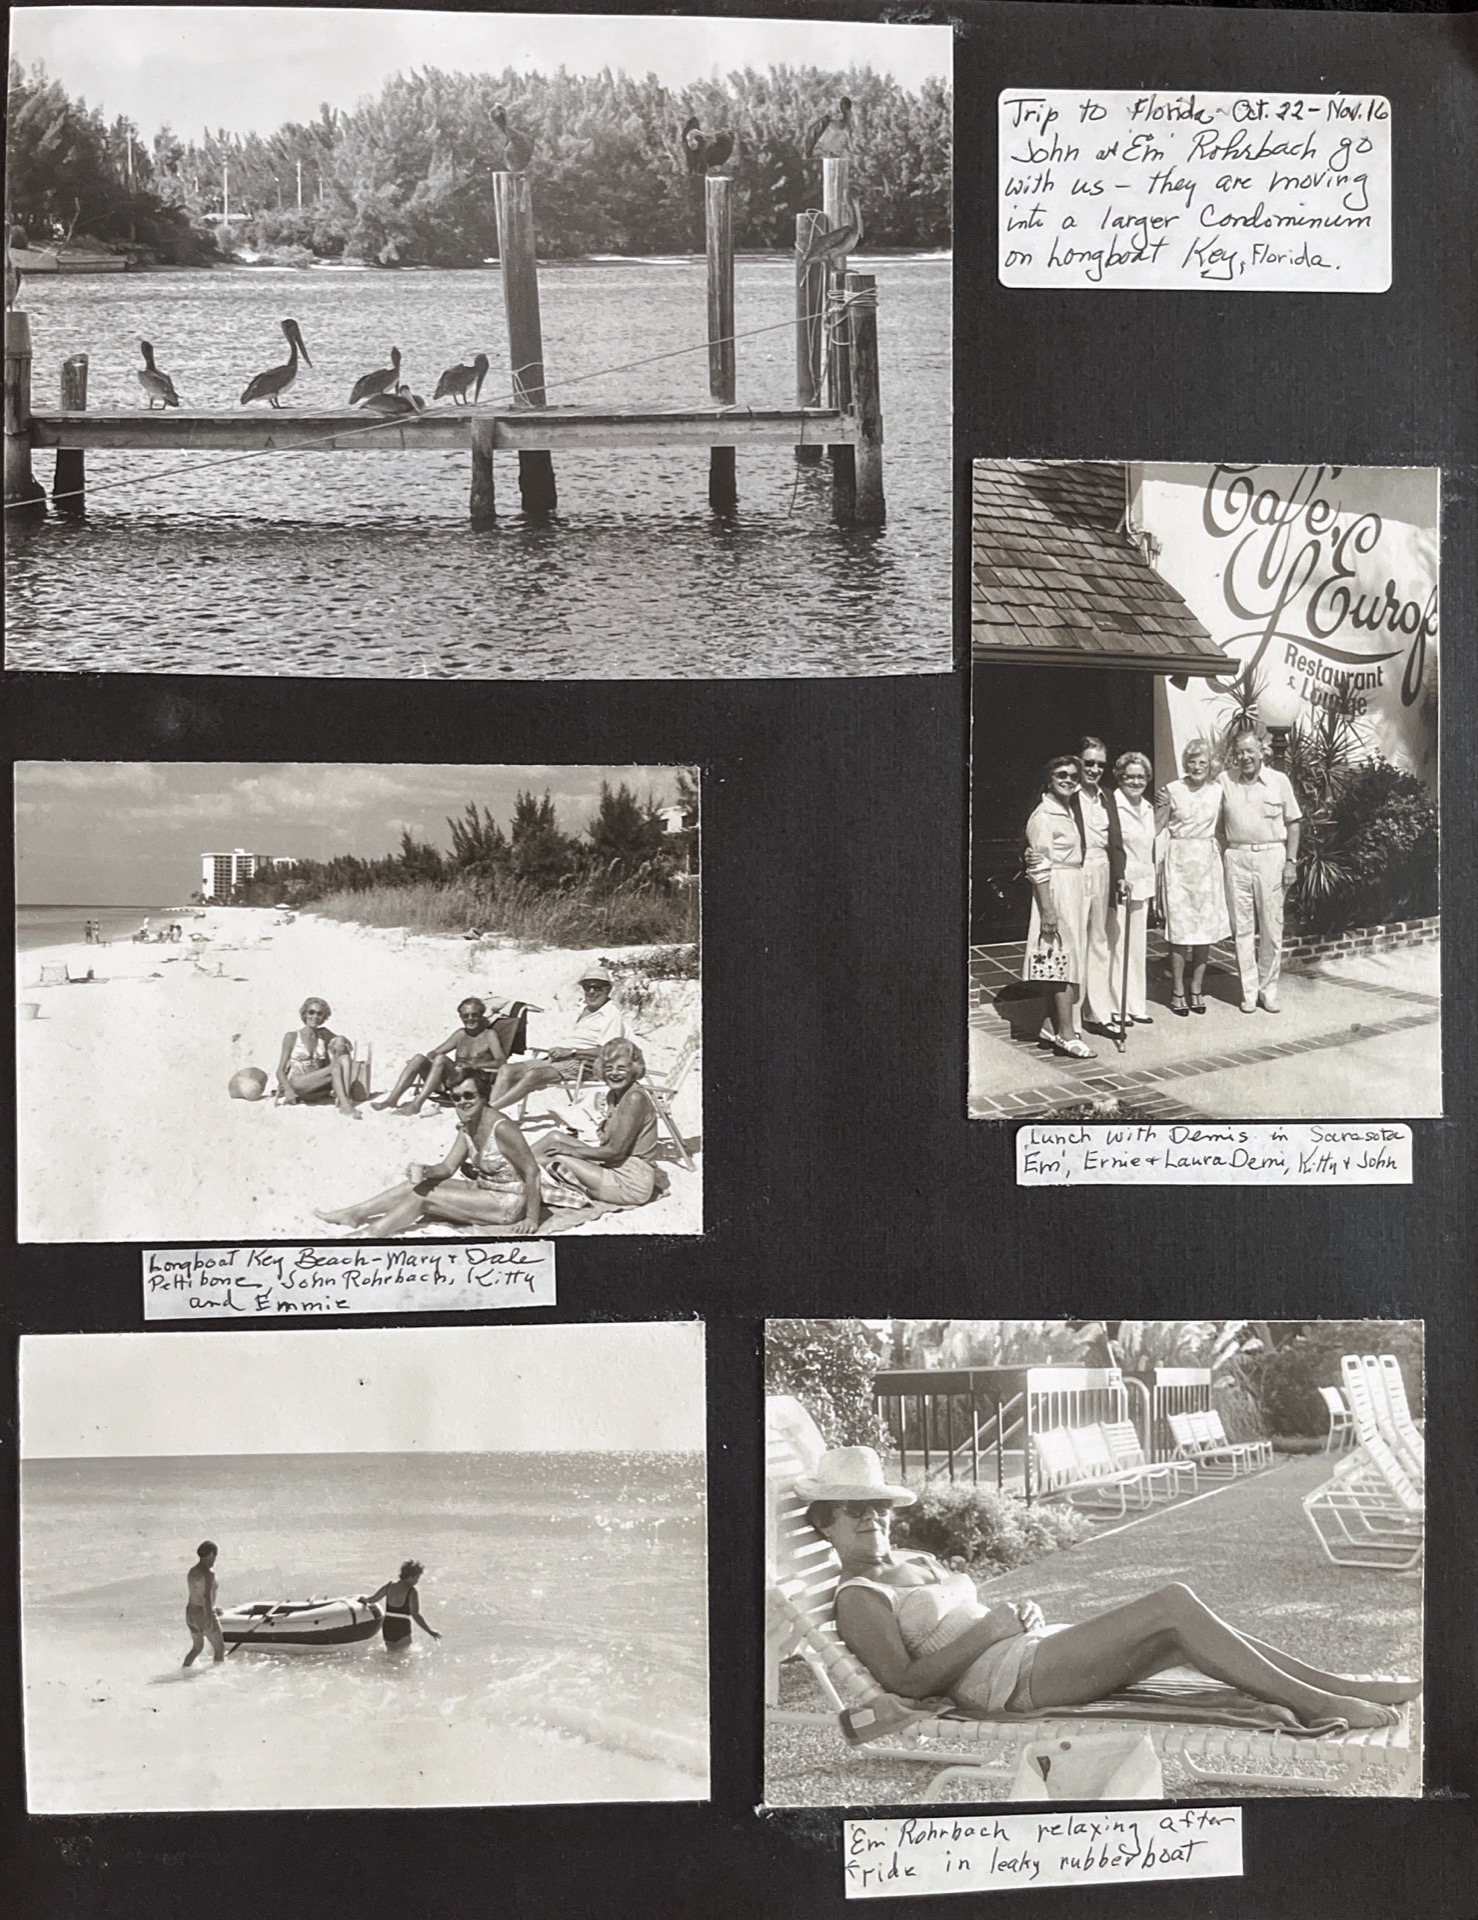 Trip to Florida - Oct. 22 - Nov. 16
John and 'Em' Rohrbach go
with us - they are moving
into a larger Condominium
on Longboat Key, Florida.
Café
L'Europ
Restaurant
& Lounge
Lunch with Demis in Sarasota
'Em', Ernie + Laura Demi, Kitty + John
Longboat Key Beach - Mary + Dale
Pettibone, John Rohrbach, Kitty
and Emmie
'Em' Rohrbach relaxing after
ride in leaky rubber boat